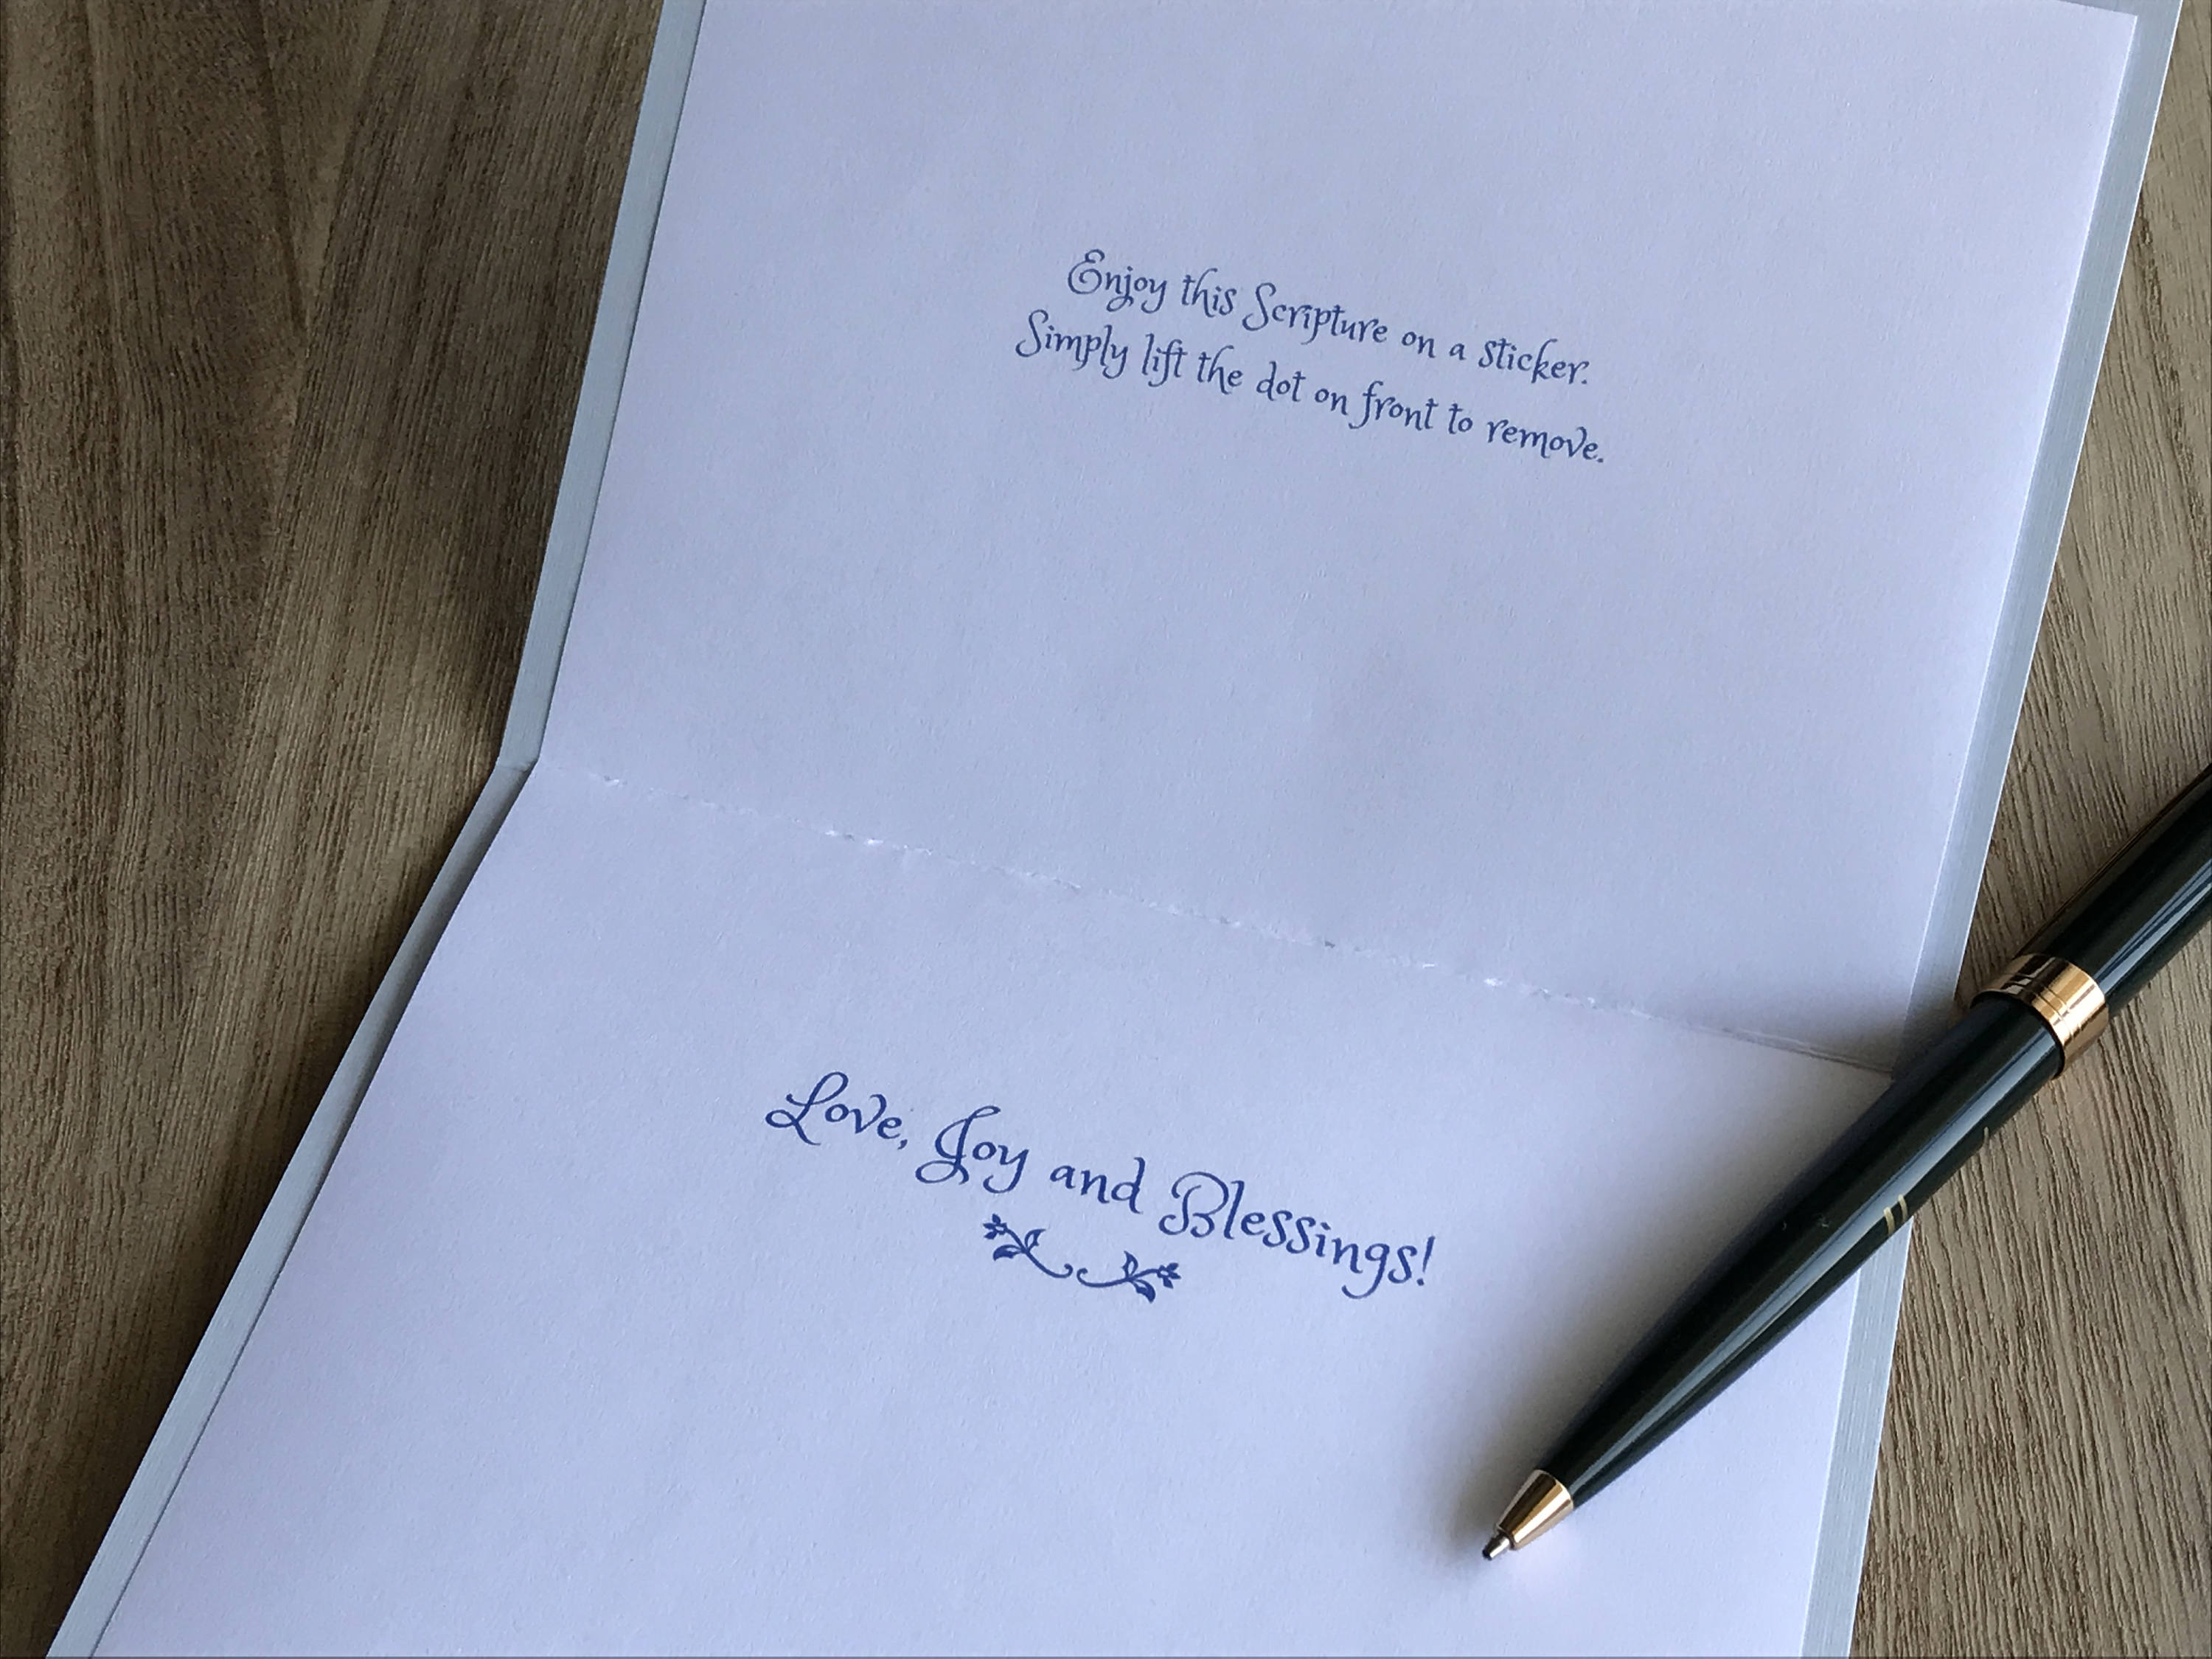 Enjoy this Scripture on a sticker.
Simply lift the dot on front to remove.
Love, Joy and Blessings!